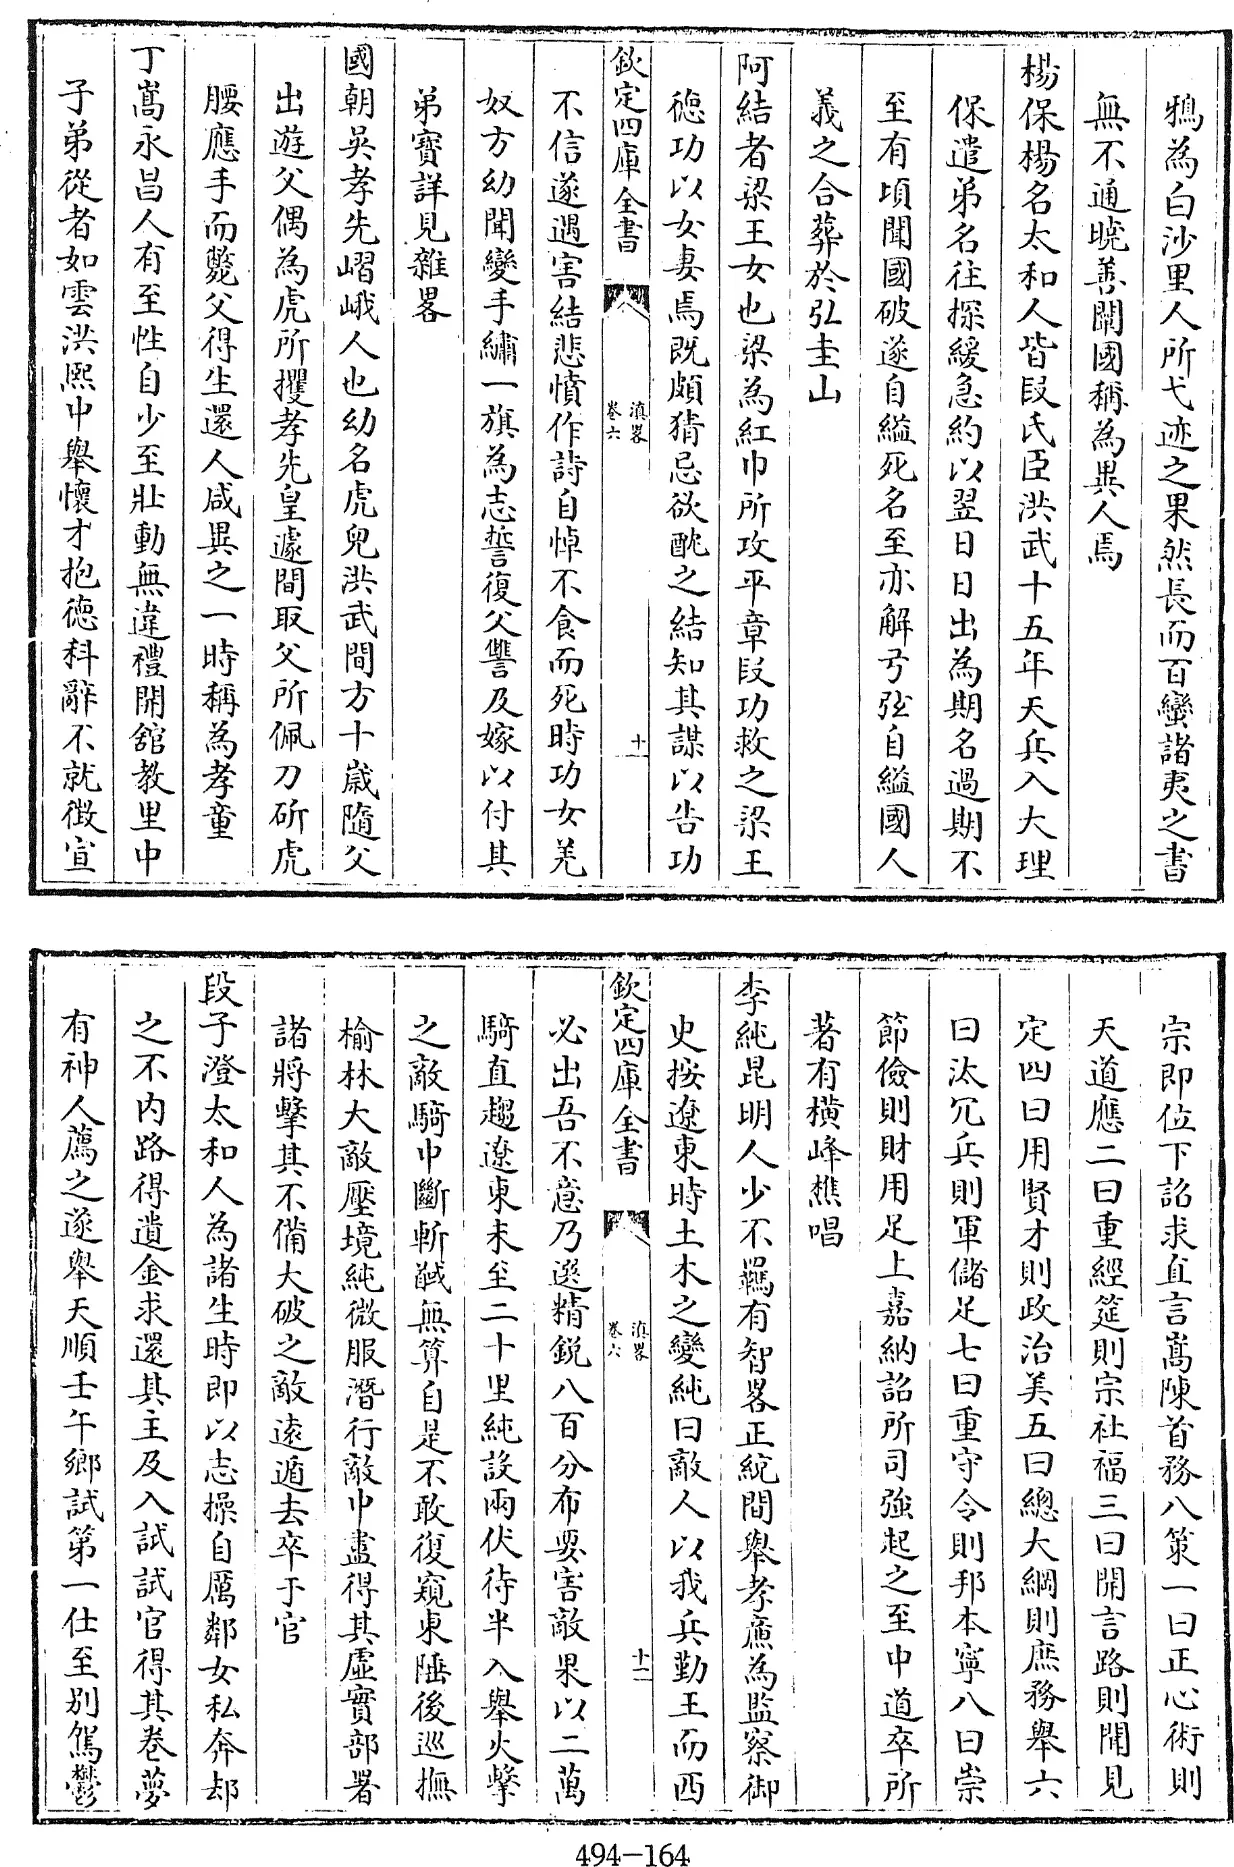 鴉為白沙里人所弋迹之果然長而百蠻諸夷之書
無不通曉善闡國稱為異人焉
楊保楊名太和人皆段氏臣洪武十五年天兵入大理
保遣弟名往探緩急約以翌日日出為期名過期不
至有頃聞國破遂自縊死名至亦解弓弦自縊國人
義之合葬於弘圭山
阿結者梁王女也梁為紅巾所攻平章段功救之梁王
德功以女妻焉既頗猜忌欲酖之結知其謀以告功
欽定四庫全書
滇畧
卷六
十一
不信遂遇害結悲憤作詩自悼不食而死時功女羌
奴方幼聞變手繡一旗為志誓復父讐及嫁以付其
弟寶詳見雜畧
國朝吳孝先嶍峨人也幼名虎兒洪武間方十歲隨父
出遊父偶為虎所攫孝先皇遽間取父所佩刀斫虎
腰應手而斃父得生還人咸異之一時稱為孝童
丁嵩永昌人有至性自少至壯動無違禮開舘教里中
子弟從者如雲洪熙中舉懷才抱德科辭不就徵宣
宗即位下詔求直言嵩陳首務八策一曰正心術則
天道應二曰重經筵則宗社福三曰開言路則聞見
定四曰用賢才則政治美五曰總大綱則庶務舉六
曰汰冗兵則軍儲足七曰重守令則邦本寧八曰崇
節儉則財用足上嘉納詔所司強起之至中道卒所
著有橫峰樵唱
李純昆明人少不羈有智畧正統間舉孝廉為監察御
史按遼東時土木之變純曰敵人以我兵勤王而西
欽定四庫全書
滇畧
卷六
十二
必出吾不意乃選精銳八百分布要害敵果以二萬
騎直趨遼東未至二十里純設兩伏待半入舉火擊
之敵騎中斷斬馘無算自是不敢復窺東陲後巡撫
榆林大敵壓境純微服潛行敵中盡得其虛實部署
諸將擊其不備大破之敵遠遁去卒于官
段子澄太和人為諸生時即以志操自厲鄰女私奔却
之不內路得遺金求還其主及入試試官得其卷夢
有神人薦之遂舉天順壬午鄉試第一仕至別駕鬱
494-164